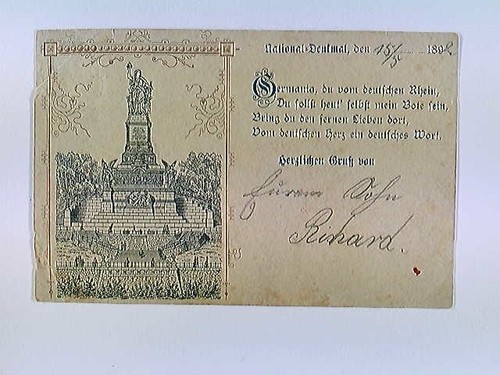 National-Denkmal, den 15/5 1892
Germania, du vom deutschen Rhein,
Du sollst heut' selbst mein Bote sein,
Bring du den fernen Lieben dort,
Vom deutschen Herz ein deutsches Wort.
Herzlichen Gruß von
Eurem Sohn
Rihard.